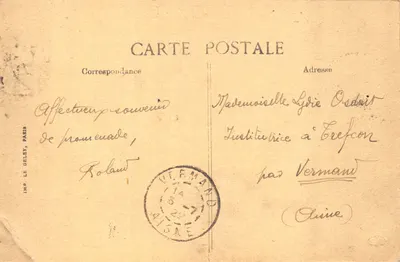 CARTE POSTALE
Correspondance
Affectueux souvenir
de promenade,
Roland
Adresse
Mademoiselle Lydie
Institutrice à Trefcon
par Vermand
(Aisne)
VERMAND
AISNE
IMP. LE DELEY, PARIS